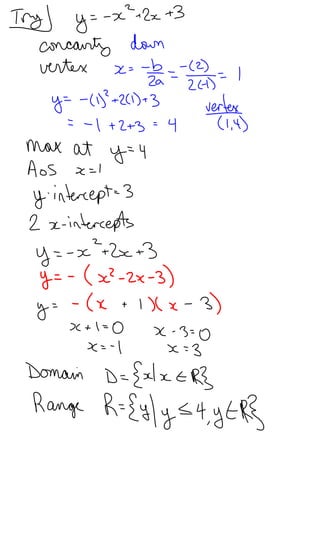 Try y = -x²+2x+3
concavity down
vertex x = -b/2a = -(2)/2(-1) = 1
y = -(1)²+2(1)+3 vertex
= -1+2+3 = 4 (1,4)
max at y=4
AoS x=1
y-intercept=3
2 x-intercepts
y = -x²+2x+3
y = -(x²-2x-3)
y = -(x + 1)(x - 3)
x+1=0 x-3=0
x=-1 x=3
Domain D={x|x∈R}
Range R={y|y≤4, y∈R}